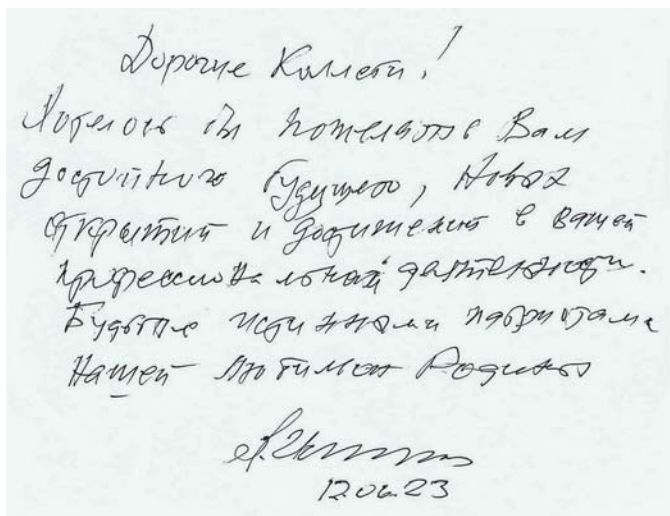 Дорогие Коллеги!
Хотелось бы пожелать Вам
достойного будущего, Новых
открытий и достижений в вашей
профессиональной деятельности.
Будьте истинными патриотами
Нашей любимой Родины
12.06.23